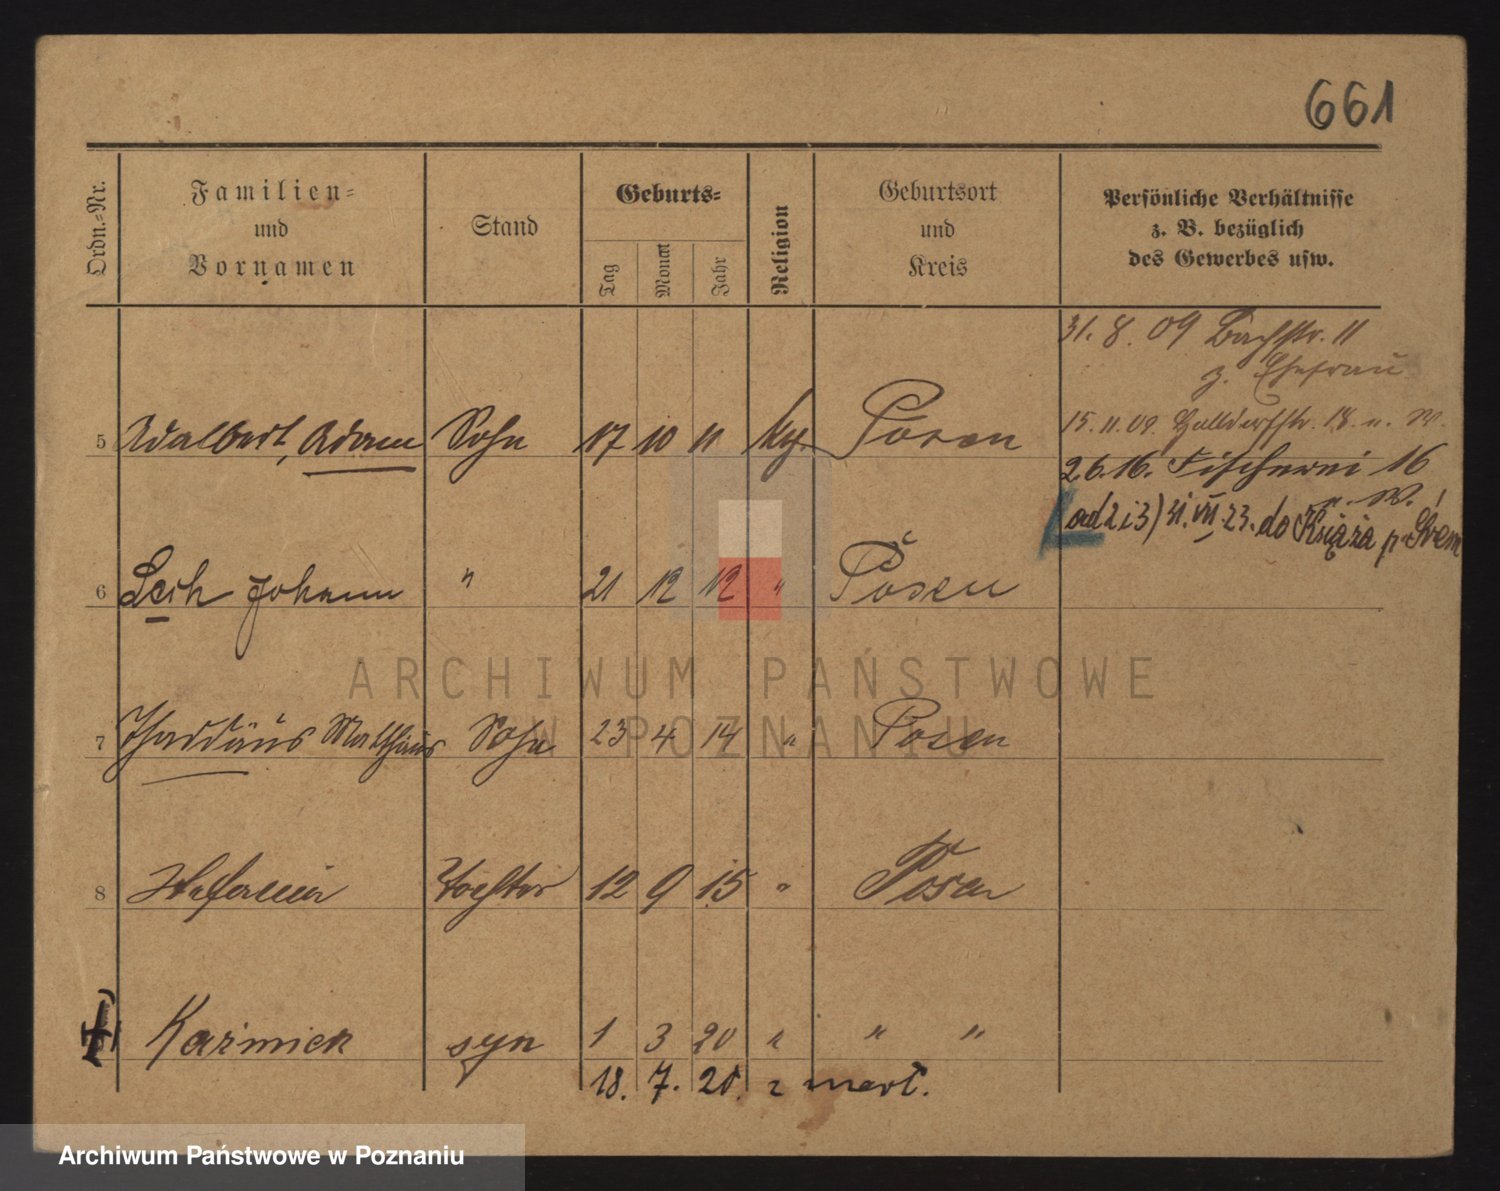 661
Ordn.-Nr.
Familien-
und
Vornamen
Stand
Geburts-
Tag
Monat
Jahr
Religion
Geburtsort
und
Kreis
Persönliche Verhältnisse
z. B. bezüglich
des Gewerbes usw.
31. 8. 09 Bachstr. 11
z. Ehefrau
15. 11. 09. 18. n. W.
5 Adalbert, Adam Sohn 17 10 11 Posen
26. 16. Fischerei 16
n. W.
od 2 i 3) 31. VII. 23. do Książa p. Śrem
6 Lech Johann " 21 12 12 " Posen
ARCHIWUM PAŃSTWOWE
W POZNANIU
7 Thaddäus Matthäus Sohn 23 4 14 " Posen
8 Tochter 12 9 15 " Posen
Kazimierz syn 1 3 20 " " "
18. 7. 20. " 
Archiwum Państwowe w Poznaniu